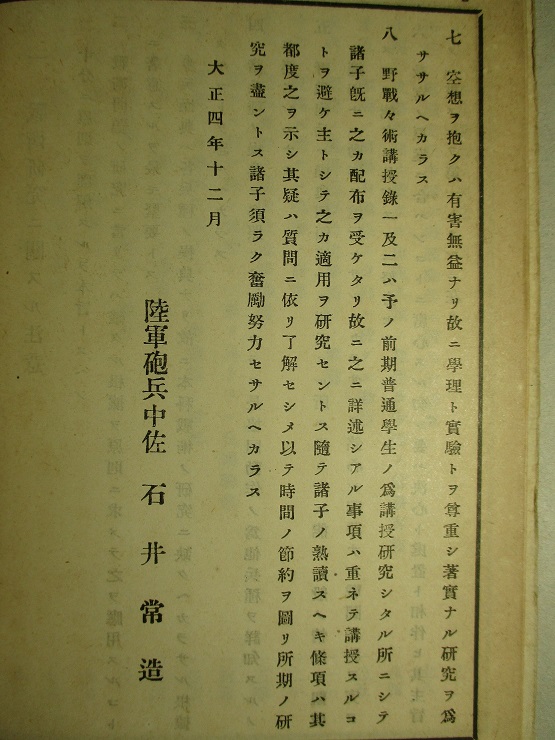 七　空想ヲ抱クハ有害無益ナリ故ニ學理ト實驗トヲ尊重シ著實ナル研究ヲ爲
ササルヘカラス
八　野戰々術講授錄一及二ハ予ノ前期普通學生ノ爲講授研究シタル所ニシテ
諸子旣ニ之カ配布ヲ受ケタリ故ニ之ニ詳述シアル事項ハ重ネテ講授スルコ
トヲ避ケ主トシテ之カ適用ヲ研究セントス隨テ諸子ノ熟讀スヘキ條項ハ其
都度之ヲ示シ其疑ハ質問ニ依リ了解セシメ以テ時間ノ節約ヲ圖リ所期ノ研
究ヲ盡ントス諸子須ラク奮勵努力セサルヘカラス
大正四年十二月
陸軍砲兵中佐　石井常造